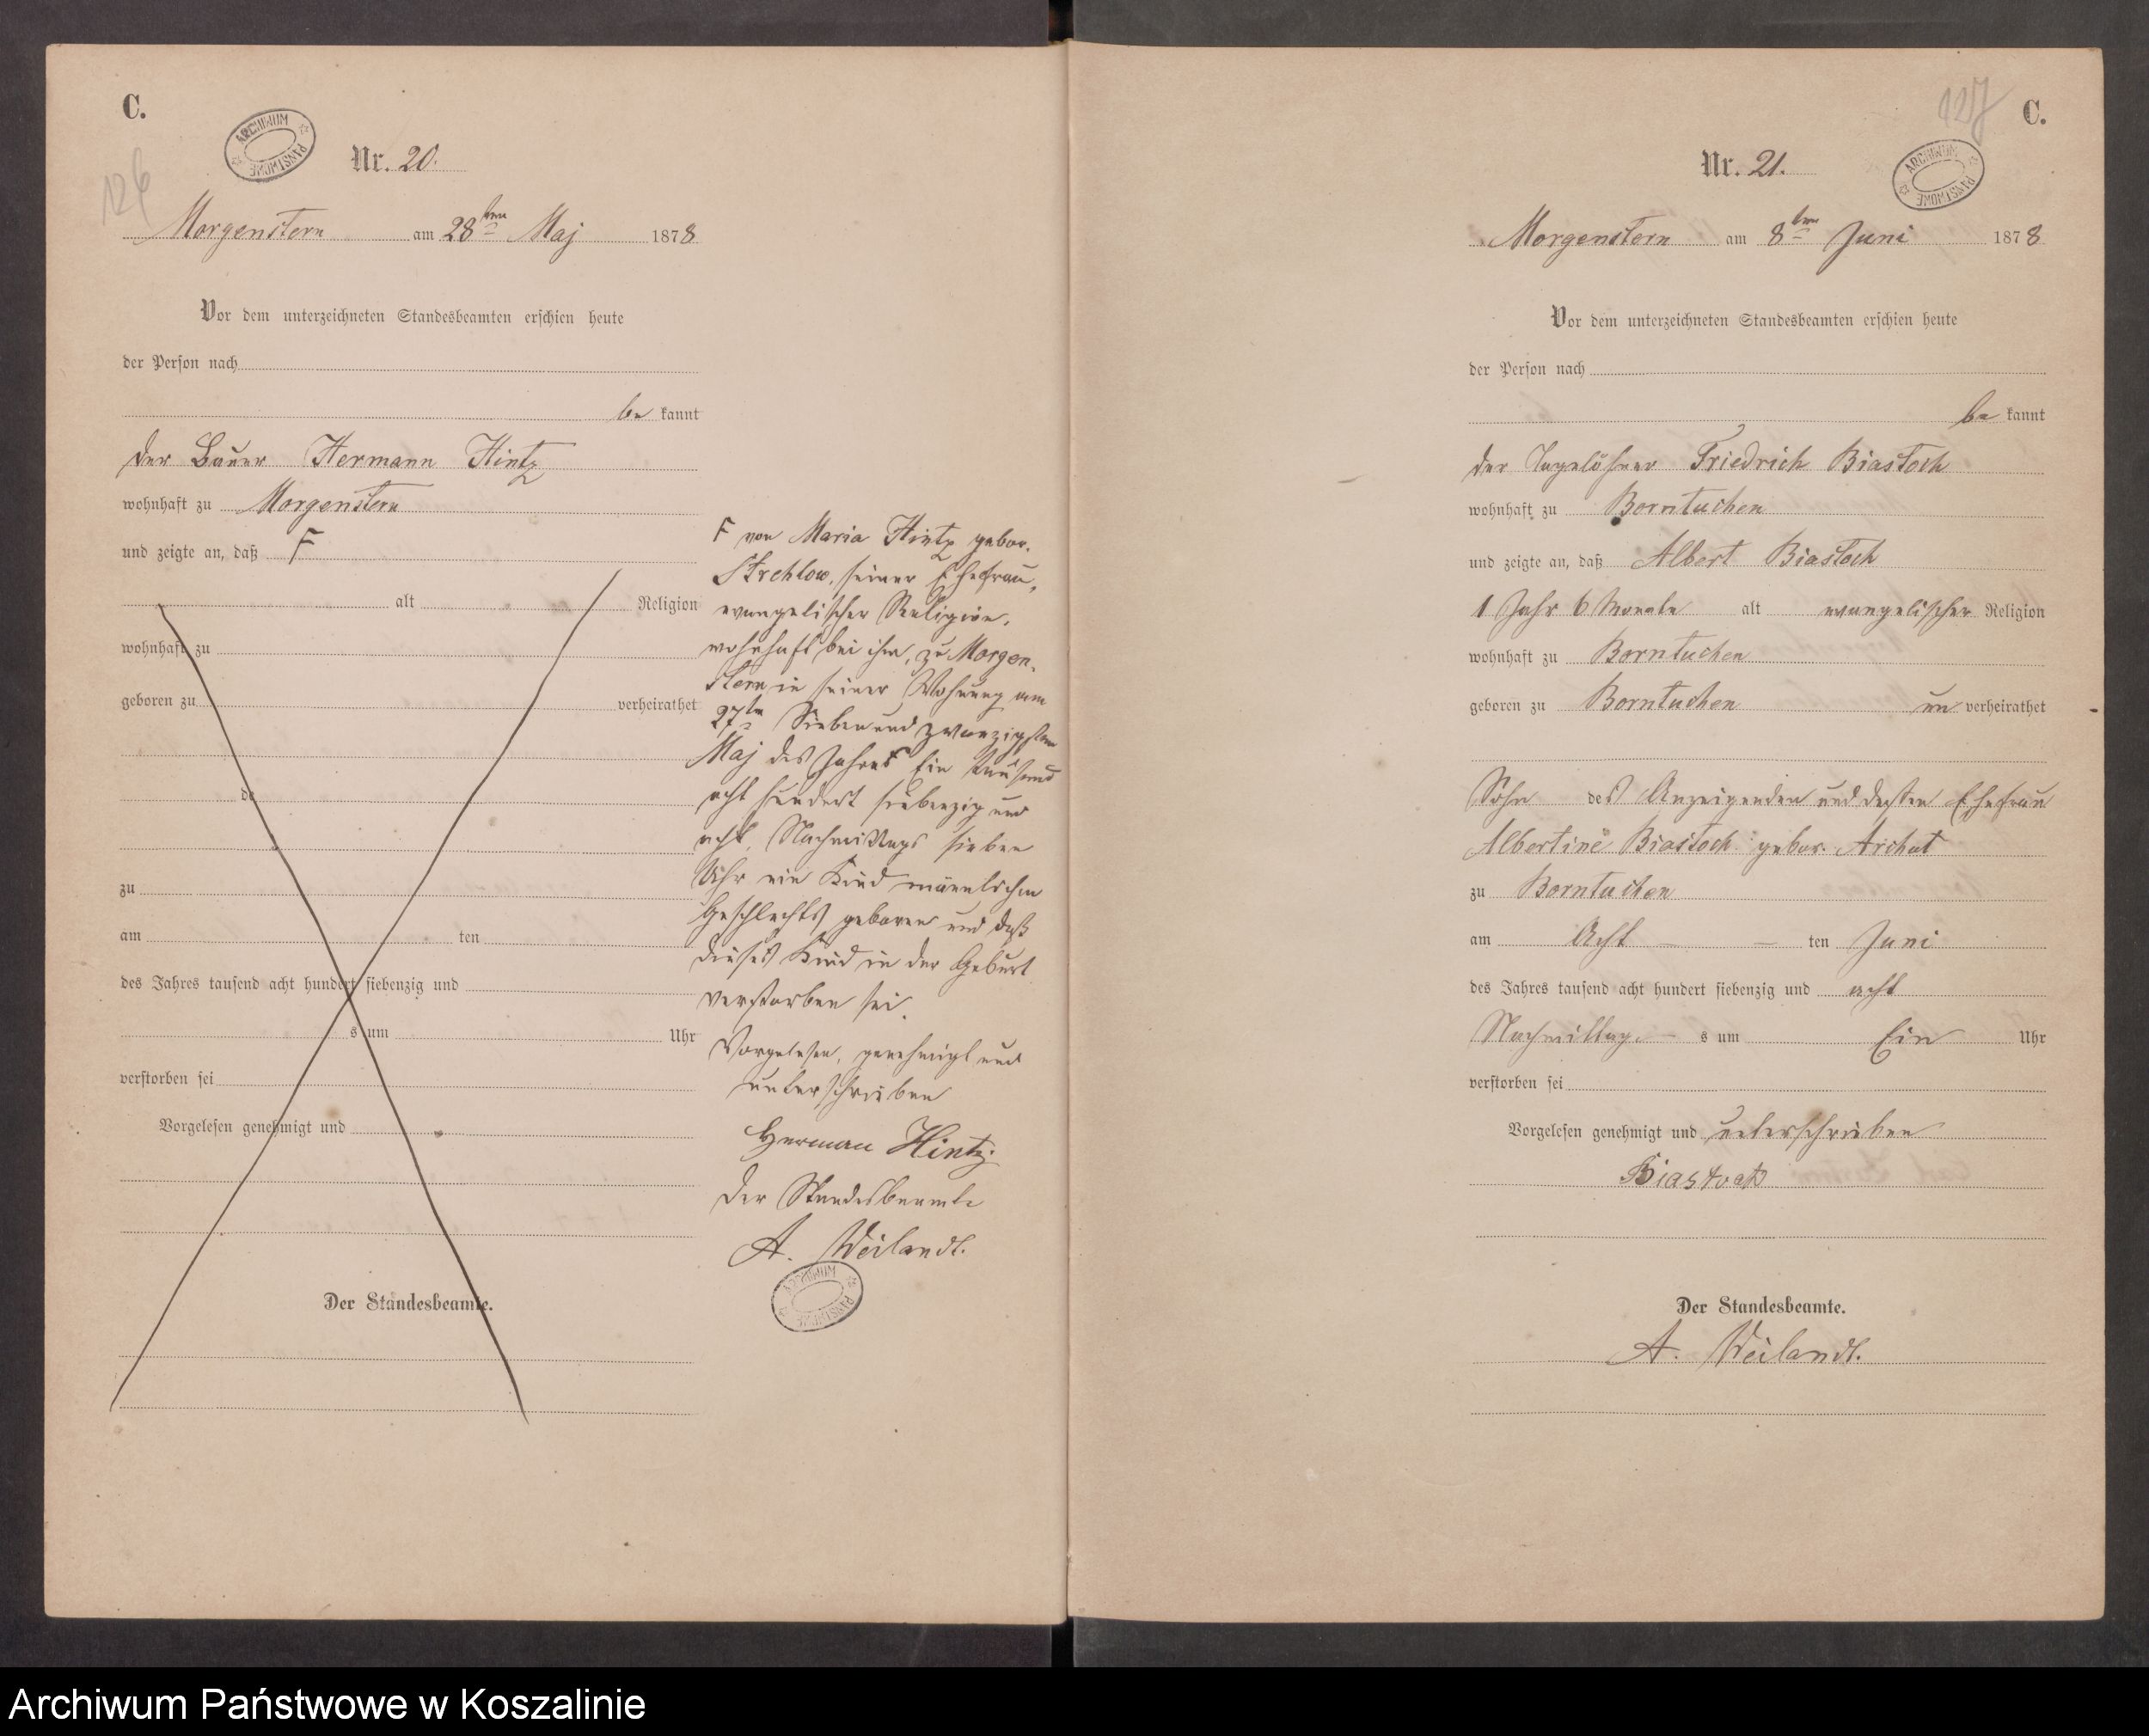 C.
ARCHIWUM PAŃSTWOWE
126
Nr. 20.
Morgenstern am 28ten Maj 1878
Vor dem unterzeichneten Standesbeamten erschien heute
der Person nach
be kannt
der Bauer Hermann Hintz
wohnhaft zu Morgenstern
und zeigte an, daß F
alt Religion
wohnhaft zu
geboren zu verheirathet
de
zu
am ten
des Jahres tausend acht hundert siebenzig und
s um Uhr
verstorben sei
Vorgelesen genehmigt und
Der Standesbeamte.
F von Maria Hintz gebor.
Strehlow, seiner Ehefrau,
evangelischer Religion,
wohnhaft bei ihm, zu Morgen-
stern in seiner Wohnung am
27ten Sieben und zwanzigsten
Maj des Jahres Ein tausend
acht hundert siebenzig und
acht, Nachmittags sieben
Uhr ein Kind männlichen
Geschlechts geboren und daß
dieses Kind in der Geburt
verstorben sei.
Vorgelesen, genehmigt und
unterschrieben
Herman Hintz.
Der Standesbeamte
A. Weilandt.
ARCHIWUM PAŃSTWOWE
127
C.
Nr. 21.
ARCHIWUM PAŃSTWOWE
Morgenstern am 8ten Juni 1878
Vor dem unterzeichneten Standesbeamten erschien heute
der Person nach
be kannt
der Tagelöhner Friedrich Biastoch
wohnhaft zu Borntuchen
und zeigte an, daß Albert Biastoch
1 Jahr 6 Monate alt evangelischer Religion
wohnhaft zu Borntuchen
geboren zu Borntuchen un verheirathet
Sohn des Anzeigenden und dessen Ehefrau
Albertine Biastoch gebor. Archut
zu Borntuchen
am Acht ten Juni
des Jahres tausend acht hundert siebenzig und acht
Nachmittag s um Ein Uhr
verstorben sei
Vorgelesen genehmigt und unterschrieben
Der Standesbeamte.
A. Weilandt.
Archiwum Państwowe w Koszalinie